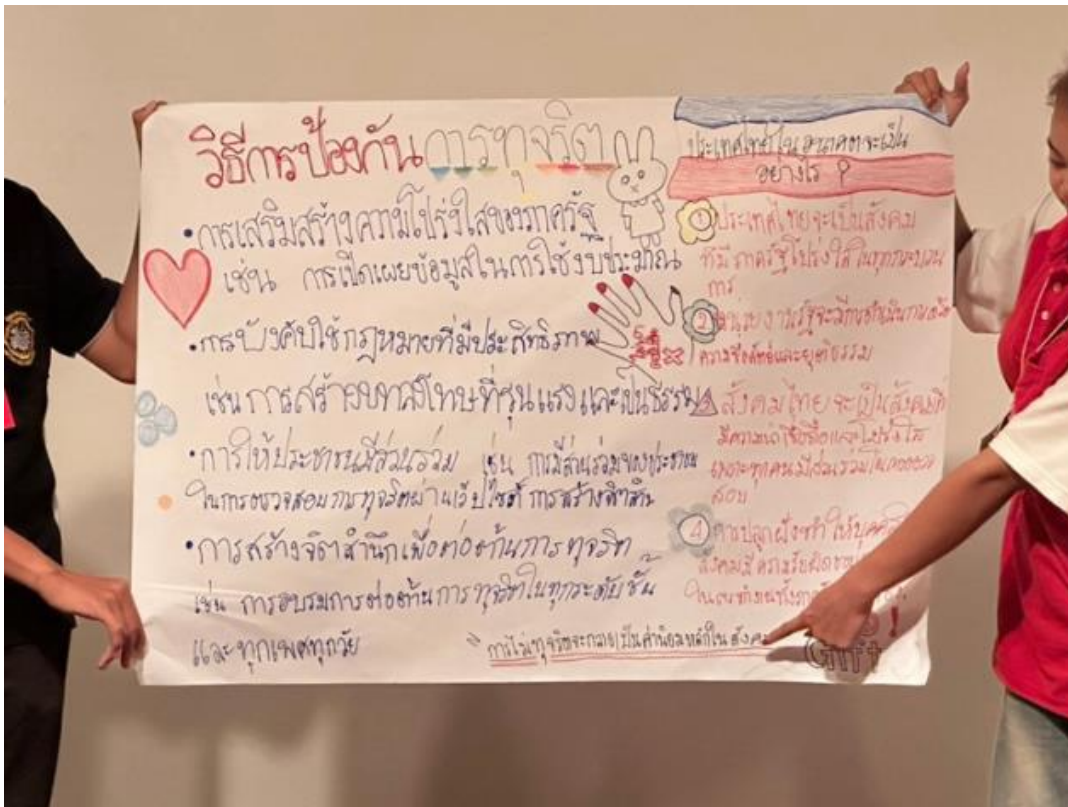 วิธีการป้องกันการทุจริต
• การเสริมสร้างความโปร่งใสของภาครัฐ
เช่น การเปิดเผยข้อมูลในการใช้งบประมาณ
• การบังคับใช้กฎหมายที่มีประสิทธิภาพ
เช่นการสร้างบทลงโทษที่รุนแรงและเป็นธรรม
• การให้ประชาชนมีส่วนร่วม เช่น การมีส่วนร่วมของประชาชน
ในการตรวจสอบการทุจริตผ่านเว็ปไซต์ การสร้าง
• การสร้างจิตสำนึกเพื่อต่อต้านการทุจริต
เช่น การอบรมการต่อต้านการทุจริตในทุกระดับชั้น
และทุกเพศทุกวัย
ประเทศไทยในอนาคตจะเป็น
อย่างไร ?
1 ประเทศไทยจะเป็นสังคม
ที่มีภาครัฐโปร่งใสในทุกกระบวน
การ
2 หน่วยงานรัฐจะ
ความซื่อสัตย์และยุติธรรม
สังคมไทยจะเป็นสังคมที่
มีความน่าเชื่อถือและโปร่งใส
เพราะทุกคนมีส่วนร่วมในการตรวจ
สอบ
4 การปลูกฝังทำให้
สังคมมีความรับผิดชอบ
"การไม่ทุจริตจะกลายเป็นค่านิยมหลักในสังคม
Gift